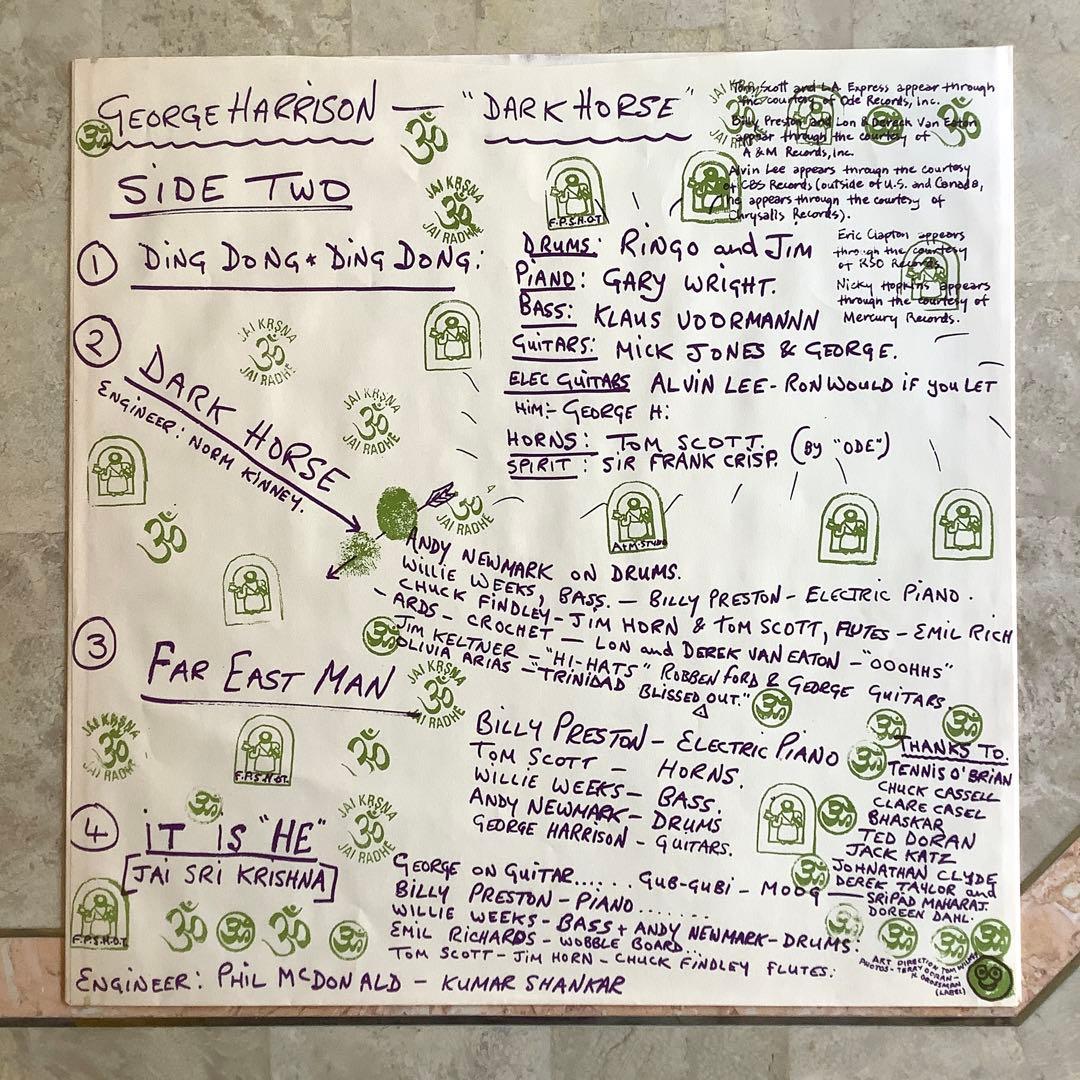 GEORGE HARRISON — "DARK HORSE"
SIDE TWO
Tom Scott and L.A. Express appear through
the courtesy of Ode Records, inc.
Billy Preston and Lon & Dereck Van Eaton
appear through the courtesy of
A & M Records, Inc.
Alvin Lee appears through the courtesy
of CBS Records (outside of U.S. and Canada,
he appears through the courtesy of
Chrysalis Records).
Eric Clapton appears
through the courtesy
of RSO Records
Nicky Hopkins appears
through the courtesy of
Mercury Records.
① DING DONG * DING DONG:
DRUMS: RINGO and JIM
PIANO: GARY WRIGHT.
BASS: KLAUS VOORMANNN
GUITARS: MICK JONES & GEORGE.
ELEC GUITARS ALVIN LEE - RON WOULD IF YOU LET
HIM:- GEORGE H:
HORNS: TOM SCOTT. (BY "ODE")
SPIRIT: SIR FRANK CRISP.
② DARK HORSE
ENGINEER: NORM KINNEY.
ANDY NEWMARK ON DRUMS.
WILLIE WEEKS, BASS. — BILLY PRESTON - ELECTRIC PIANO.
CHUCK FINDLEY - JIM HORN & TOM SCOTT, FLUTES - EMIL RICH
- ARDS - CROCHET — LON and DEREK VAN EATON - "OOOHHS"
JIM KELTNER - "HI-HATS" ROBBEN FORD & GEORGE GUITARS
OLIVIA ARIAS - "TRINIDAD BLISSED OUT."
③ FAR EAST MAN
BILLY PRESTON - ELECTRIC PIANO
TOM SCOTT — HORNS.
WILLIE WEEKS - BASS.
ANDY NEWMARK - DRUMS
GEORGE HARRISON - GUITARS.
④ IT IS "HE"
[JAI SRI KRISHNA]
GEORGE ON GUITAR...... GUB-GUBI - MOOG
BILLY PRESTON - PIANO........
WILLIE WEEKS - BASS + ANDY NEWMARK - DRUMS:
EMIL RICHARDS - WOBBLE BOARD.
TOM SCOTT - JIM HORN - CHUCK FINDLEY FLUTES:
ENGINEER: PHIL McDONALD - KUMAR SHANKAR
THANKS TO.
TENNIS O'BRIAN
CHUCK CASSELL
CLARE CASEL
BHASKAR
TED DORAN
JACK KATZ
JOHNATHAN CLYDE
DEREK TAYLOR and
SRIPAD MAHARAJ.
DOREEN DAHL.
ART DIRECTION TOM WILKES
PHOTOS - TERRY DORAN -
H. GROSSMAN
(LABEL)
F.P.S.H.O.T.
A+M. STUDIO
F.P.S.H.O.T.
F.P.S.H.O.T.
JAI KRSNA
ॐ
JAI RADHE
JAI KRSNA
ॐ
JAI RADHE
JAI KRSNA
ॐ
JAI RADHE
ॐ
JAI RADHE
JAI KRSNA
ॐ
JAI RADHE
JAI KRSNA
ॐ
JAI RADHE
JAI KRSNA
ॐ
JAI RADHE